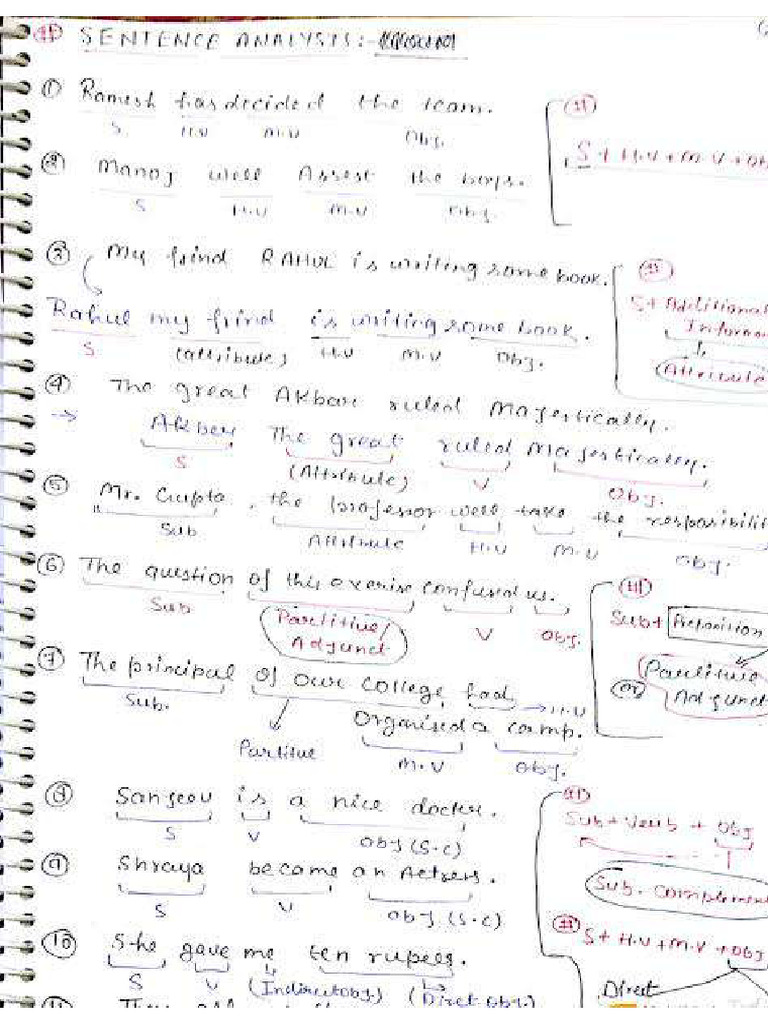 SENTENCE ANALYSIS:-
① Ramesh has decided the team.
S H.V M.V Obj.
S + H.V + M.V + Ob
② Manoj will Assest the boys.
S H.V M.V Obj
③ My frind RAHUL is writing some book.
Rahul my frind is writing some book.
S (attribute) H.V M.V Obj.
S + Additional
Informa
Attribute
④ The great Akbar ruled Majestically.
→ Akber The great ruled Majestically.
S (Attribute) V Obj.
⑤ Mr. Gupta, the professor will take the responsibiliti
Sub Attribute H.V M.V Obj.
⑥ The question of this exerise confused us.
Sub Partitive/ Adjunct V Obj.
Sub+ Preposition
Partitive
(or) Adjunct
⑦ The principal of our college had → H.V
Sub. Organised a camp.
Partitue M.V Obj.
⑧ Sanjeev is a nice docter.
S V Obj (S.C)
Sub + Verb + Obj
Sub. Complemen
⑨ Shraya became an Actrers.
S V Obj (S.C)
S + H.V + M.V + Obj
⑩ She gave me ten rupees.
S V (Indirect obj.) (Diret obj.)
Direct